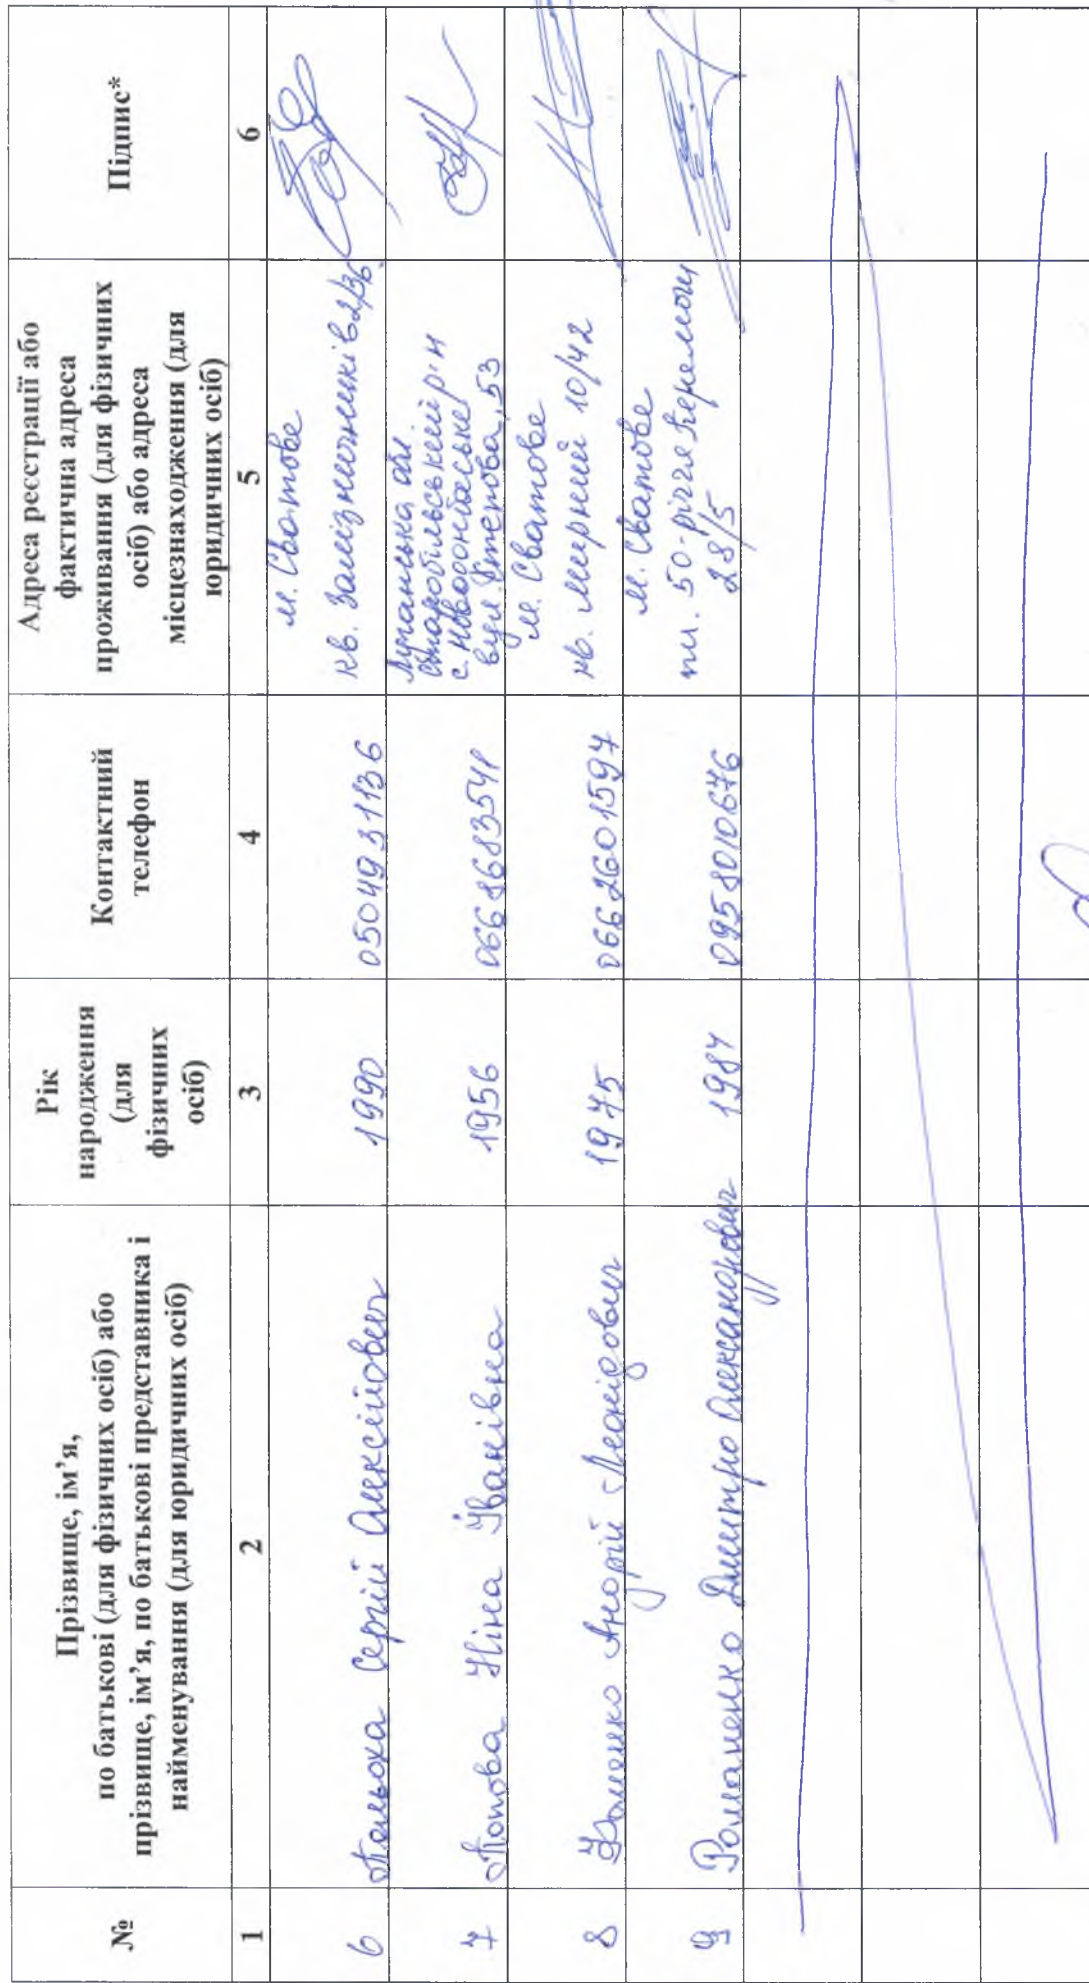 №
Прізвище, ім’я,
по батькові (для фізичних осіб) або
прізвище, ім’я, по батькові представника і
найменування (для юридичних осіб)
Рік
народження
(для
фізичних
осіб)
Контактний
телефон
Адреса реєстрації або
фактична адреса
проживання (для фізичних
осіб) або адреса
місцезнаходження (для
юридичних осіб)
Підпис*
1
2
3
4
5
6
6
Польоха Сергій Олексійович
1990
0504931136
м. Сватове
кв. Залізничників 2/36
7
Попова Ніна Іванівна
1956
0668683541
Луганська обл
с.
вул. Степова, 53
8
Андрій Леонідович
1975
0662601597
м. Сватове
кв. Мирний 10/42
9
Романенко Дмитро Олександрович
1987
0958010676
м. Сватове
пл. 50-річчя Перемоги
28/5